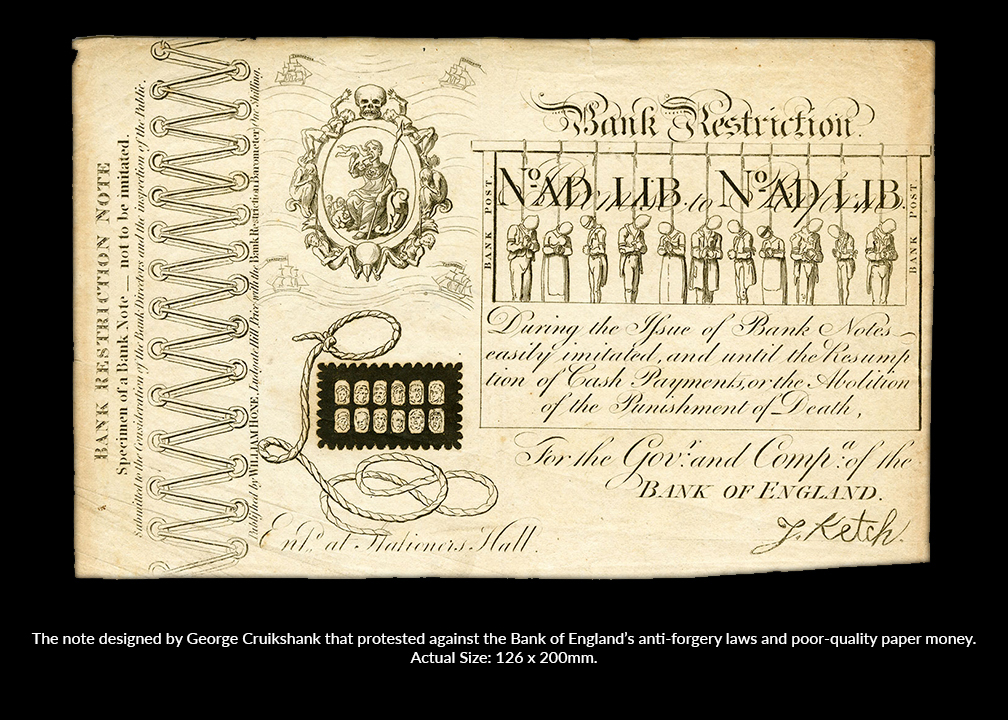 BANK RESTRICTION NOTE
Specimen of a Bank Note — not to be imitated.
Submitted to the Consideration of the Bank Directors and the inspection of the Public.
Published by WILLIAM HONE, Ludgate Hill Price with the Bank Restriction Barometer One Shilling.
Bank Restriction.
BANK POST.
No. AD LIB. No. AD LIB.
to
BANK POST.
During the Issue of Bank Notes
easily imitated, and until the Resump
tion of Cash Payments, or the Abolition
of the Punishment of Death,
For the Govr. and Compa. of the
BANK OF ENGLAND.
J. Ketch.
Entd. at Stationers Hall.
The note designed by George Cruikshank that protested against the Bank of England’s anti-forgery laws and poor-quality paper money.
Actual Size: 126 x 200mm.